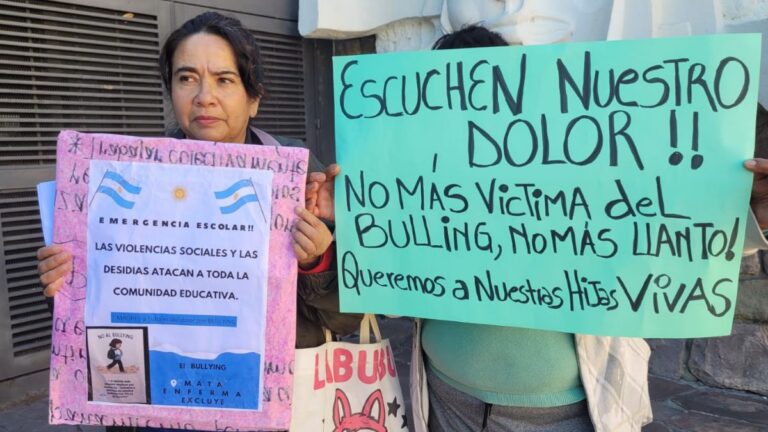 EMERGENCIA ESCOLAR!!
LAS VIOLENCIAS SOCIALES Y LAS
DESIDIAS ATACAN A TODA LA
COMUNIDAD EDUCATIVA.
NO AL BULLYING
El BULLYING
MATA
ENFERMA
EXCLUYE
LABUBU
ESCUCHEN NUESTRO
DOLOR!!
NO MÁS VICTIMA del
BULLING, NO MÁS LLANTO!
QUEREMOS A NUESTRAS HIJAS VIVAS